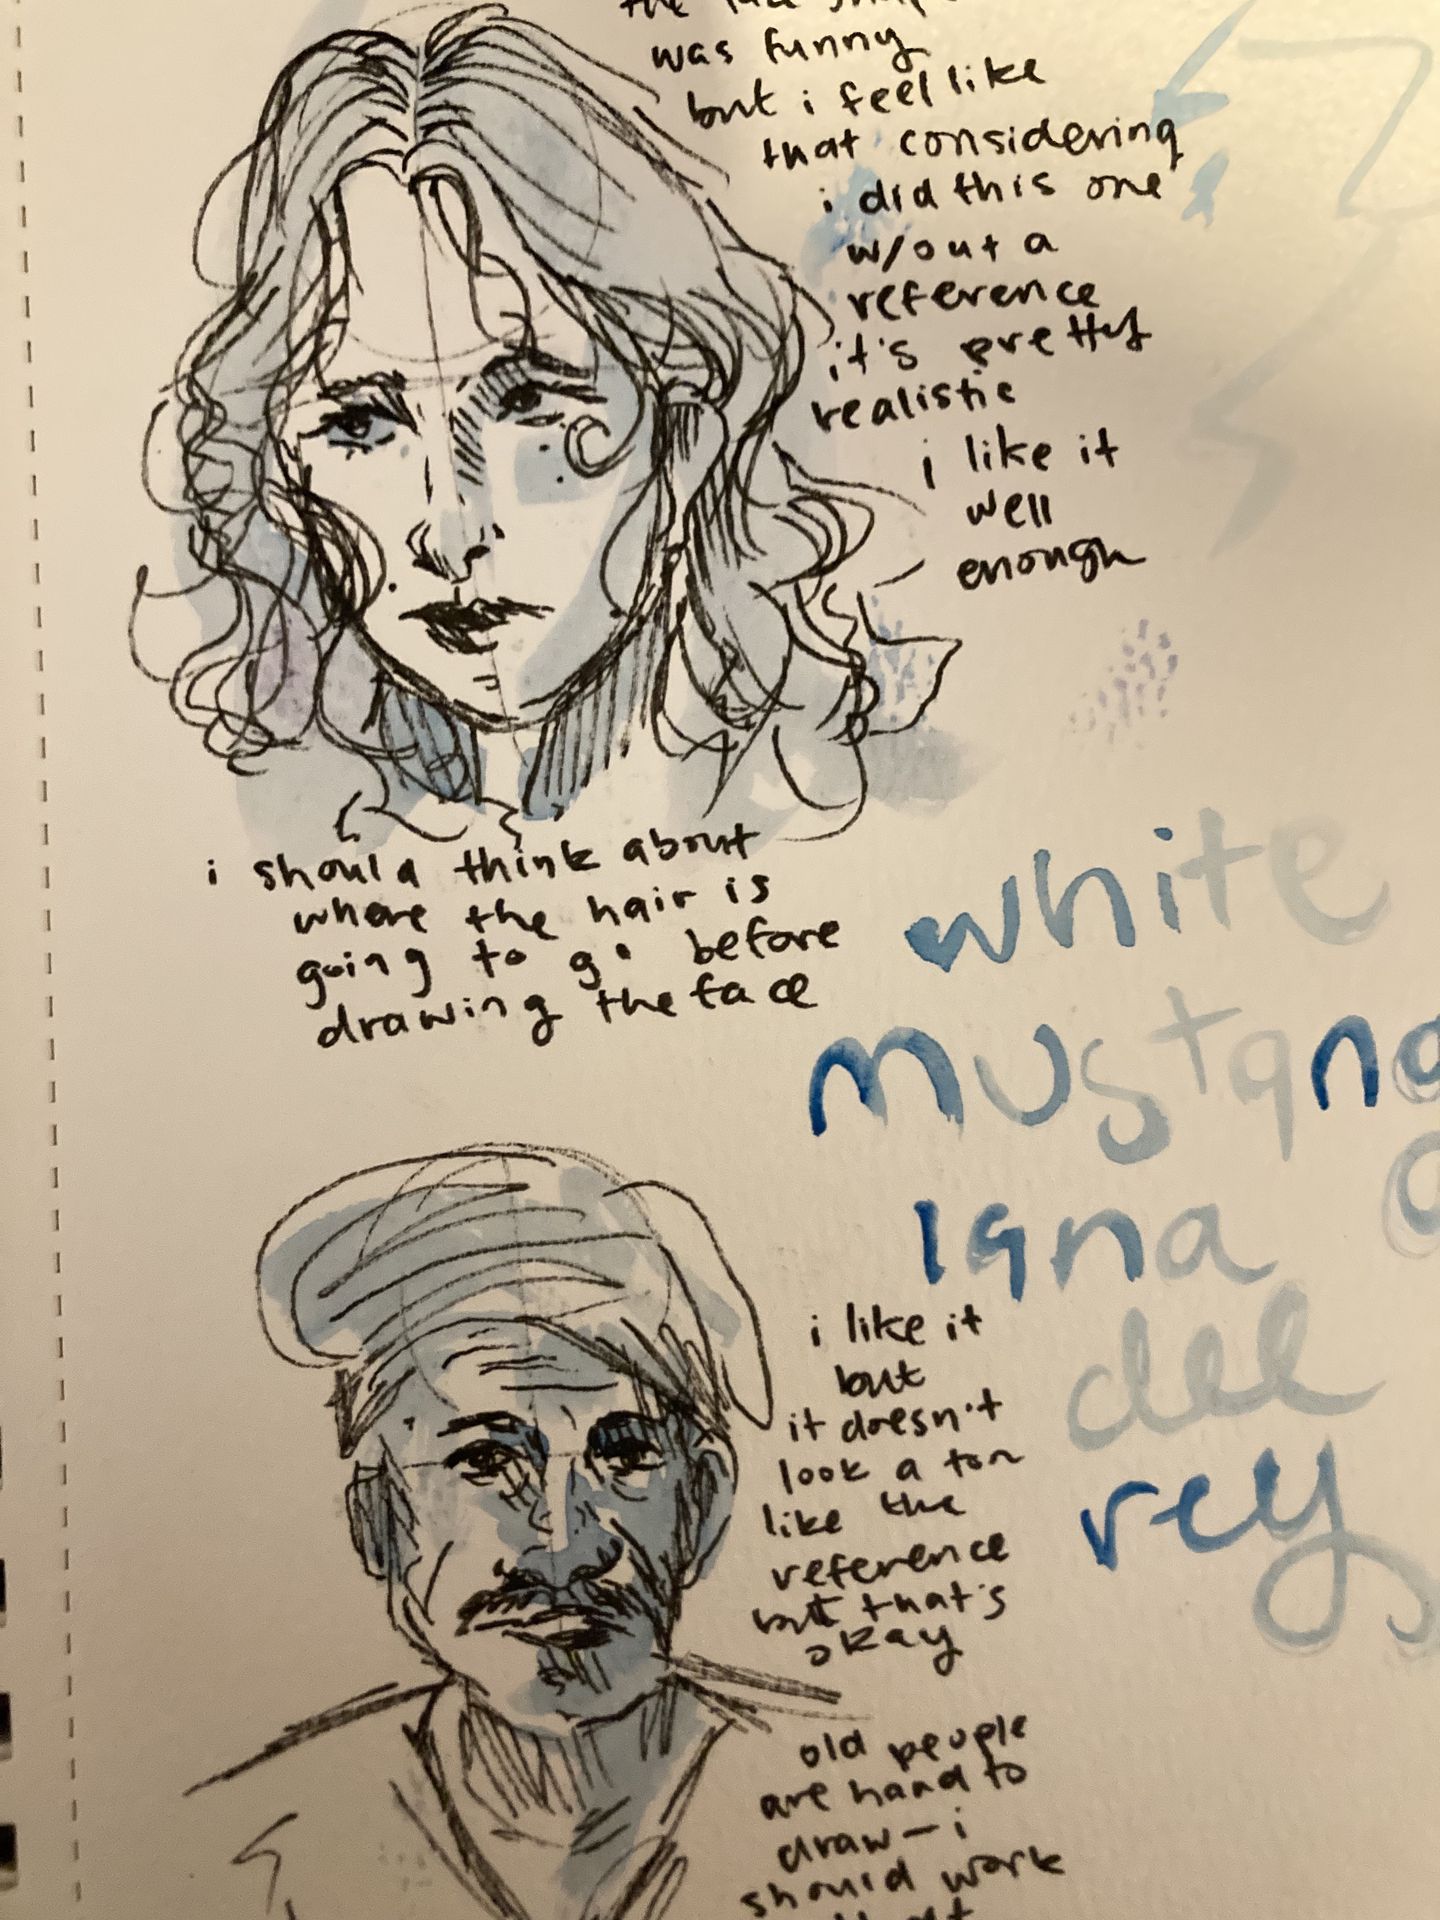 the face shape
was funny
but i feel like
that considering
i did this one
w/out a
reference
it's pretty
realistic
i like it
well
enough
i should think about
where the hair is
going to go before
drawing the face
white
mustang
lana
del
rey
i like it
but
it doesn't
look a ton
like the
reference
but that's
okay
old people
are hard to
draw - i
should work